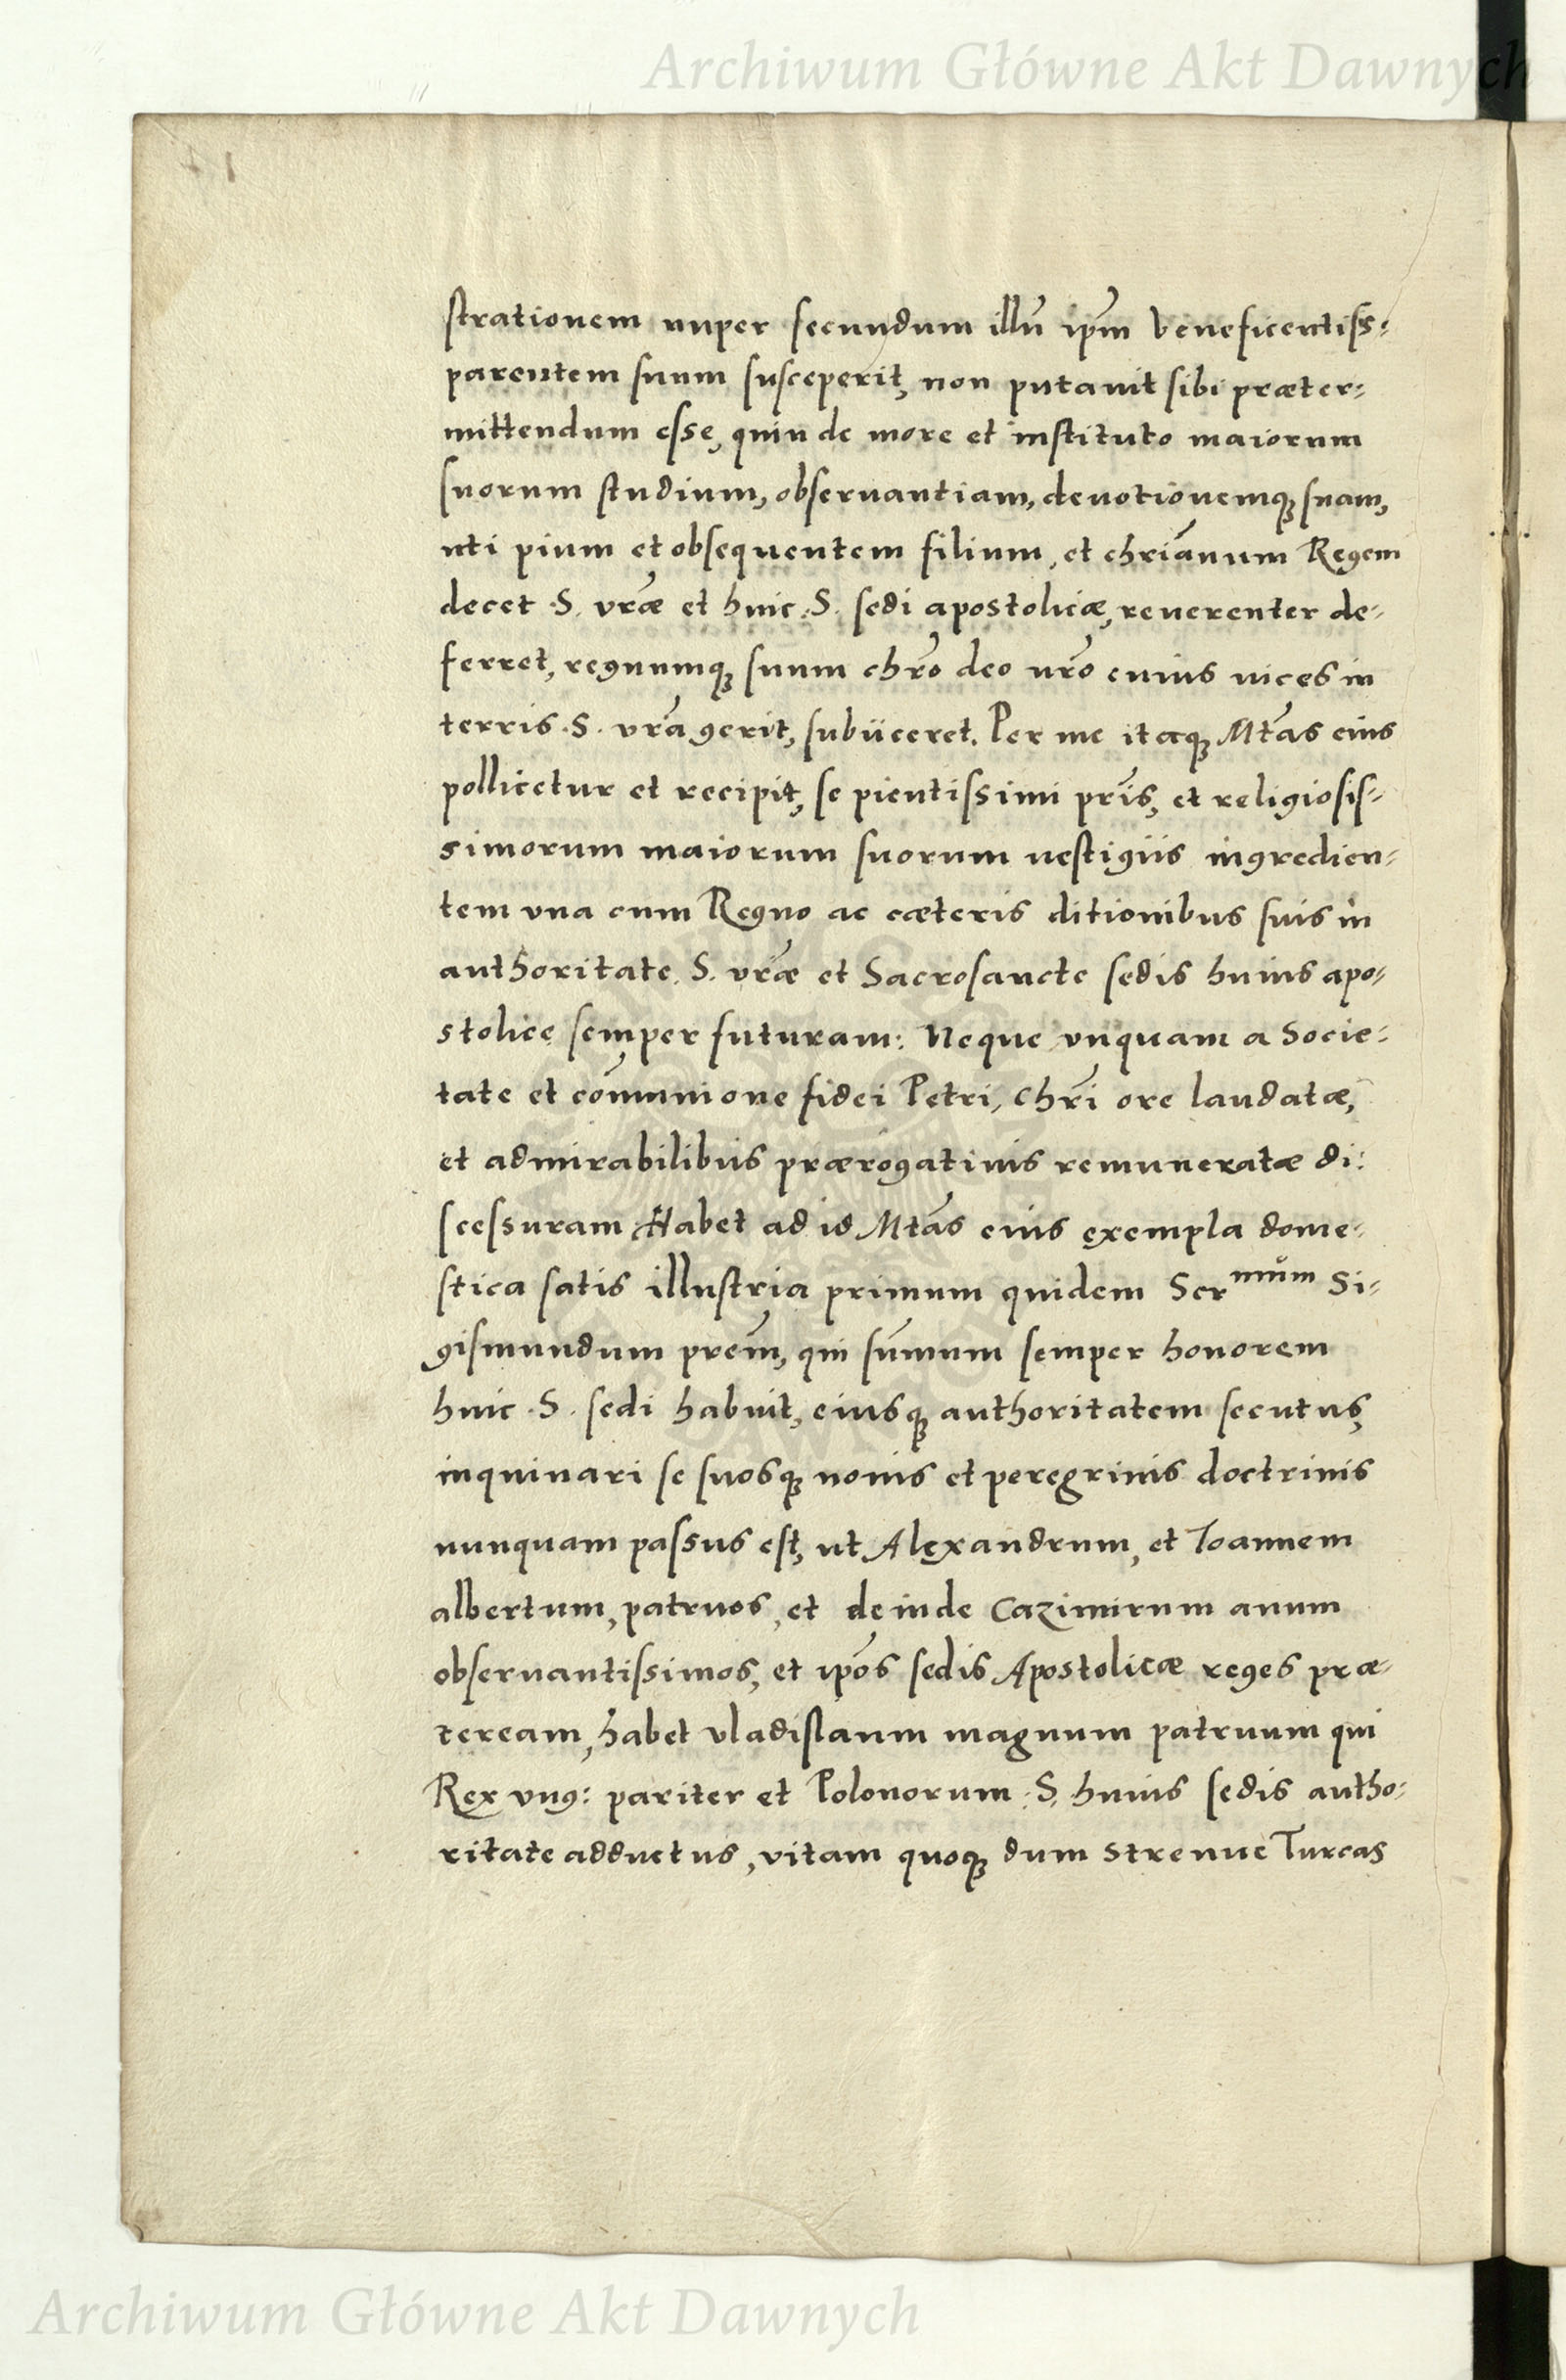 Archiwum Główne Akt Dawnych
strationem nuper secundum illũ ip̃m beneficentiss:
parentem suum susceperit, non putauit sibi præter:
mittendum esse, quin de more et instituto maiorum
suorum studium, obseruantiam, deuotionemq; suam,
uti pium et obsequentem filium, et chr̃ianum Regem
decet .S. vr̃æ et huic .S. sedi apostolicæ, reuerenter de-
ferret, regnumq; suum chr̃o deo nr̃o cuius uices in
terris .S. vr̃a gerit, subiiceret. Per me itaq; Mt̃as eius
pollicetur et recipit, se pientissimi pr̃is, et religiosis-
simorum maiorum suorum uestigiis ingredien-
tem vna cum Regno ac cæteris ditionibus suis in
authoritate .S. vr̃æ et Sacrosancte sedis huius apo-
stolicę semper futuram: Neque vnquam a Socie-
tate et com̃unione fidei Petri, Chr̃i ore laudatæ,
et admirabilibus prærogatiuis remuneratæ di:
scessuram Habet ad id Mt̃as eius exempla dome-
stica satis illustria primum quidem Ser^mum Si-
gismundum prem̃, qui sum̃um semper honorem
huic .S. sedi habuit, eiusq; authoritatem secutus,
inquinari se suosq; nouis et peregrinis doctrinis
nunquam passus est, ut Alexandrum, et Ioannem
albertum, patruos, et deinde Cazimirum auum
obseruantissimos, et ip̃os sedis Apostolicæ reges præ-
teream, habet vladislaum magnum patruum qui
Rex vng: pariter et Polonorum .S. huius sedis autho-
ritate adductus, vitam quoq; dum strenue Turcas
Archiwum Główne Akt Dawnych